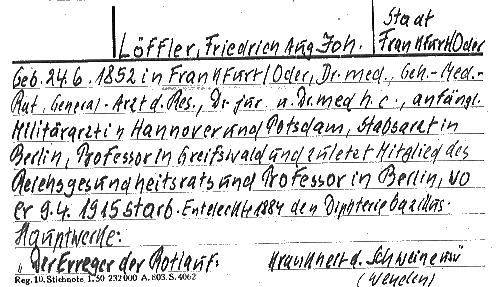 Löffler, Friedrich Aug. Joh.
Staat
Frankfurt/Oder
Geb. 24.6.1852 in Frankfurt/Oder, Dr. med., Geh.-Med.-
Rat, General-Arzt d. Res., Dr. jur. u. Dr. med h.c., anfängl.
Militärarzt in Hannover und Potsdam, Stabsarzt in
Berlin, Professor in Greifswald und zuletzt Mitglied des
Reichsgesundheitsrats und Professor in Berlin, wo
er 9.4.1915 starb. Entdeckte 1884 den Diphteriebazillus.
Hauptwerke:
"Der Erreger der Rotlauf: Krankheit d. Schweine"
(wenden)
Reg. 10. Stichnote 1. 50 232000 A. 803. S. 4062